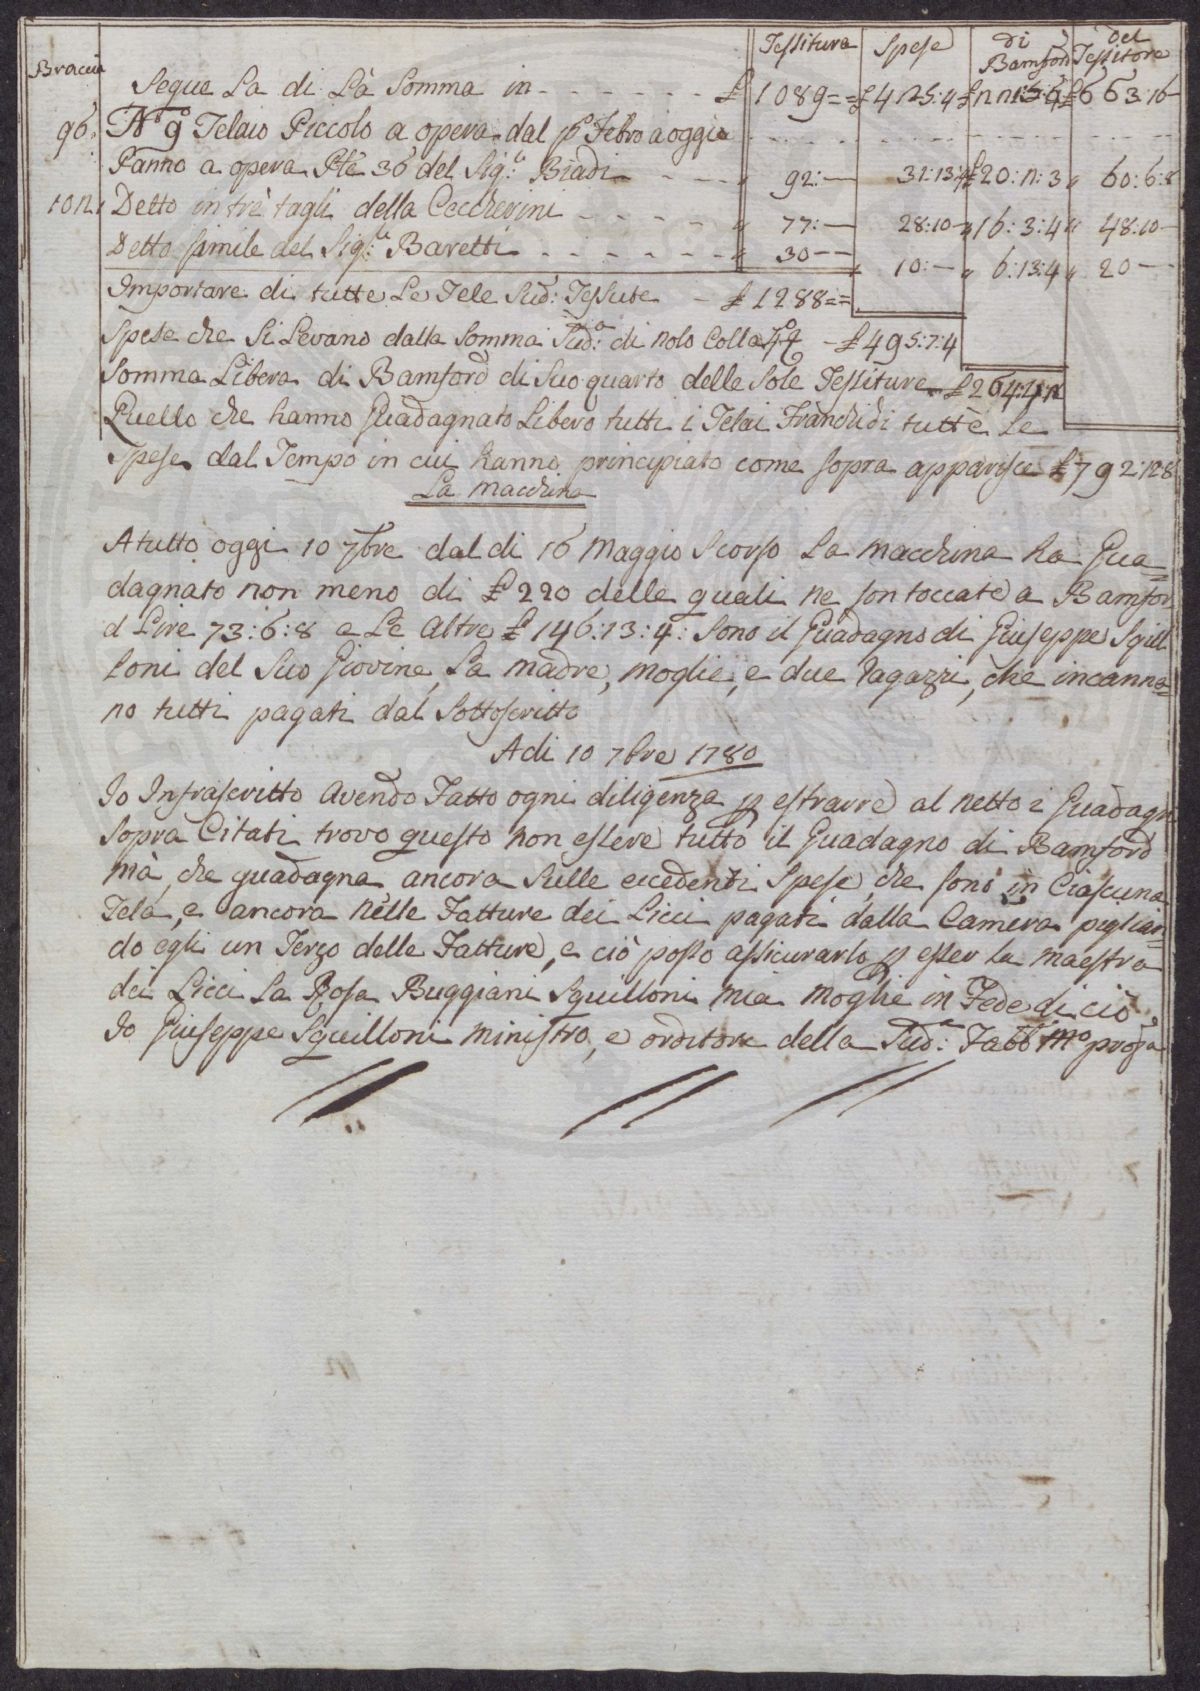 Braccia Tessitura Spese di Bamford del Tessitore
Segue La di Là Somma in - - - - - - - £ 1089== £ 425:4 £ 221:5:4 £ 663:16
96: N.º 9 Telaio Piccolo a opera dal p.º Febro a oggi
Panno a opera Pte 36 del Sig.re Biadi - - - „ 92:— 31:13:4 £ 20:2:3 „ 60:6:8
102: Detto in trè tagli della Ceccherini - - - - - „ 77:— 28:10— „ 16:3:4 „ 48:10—
Detto simile del Sig.re Baretti - - - - - - „ 30—— „ 10:— „ 6:13:4 „ 20——
Importare di tutte Le Tele Sud: Tessute - £ 1288==
Spese che Si Levano dalla Somma Sud.a di nolo Colla - £ 495:7:4
Somma Libera di Bamford di Suo quarto delle Sole Tessiture £ 264:4:2
Quello che hanno Guadagnato Libero tutti i Telai Franchi di tutte Le
Spese dal Tempo in cui hanno principiato come sopra apparisce £ 792:12:8
La macchina
A tutto oggi 10 7bre dal di 16 Maggio Scorso La macchina ha Gua=
dagnato non meno di £ 220 delle quali ne son toccate a Bamfor
d Lire 73:6:8 e Le altre £ 146:13:4: Sono il Guadagno di Giuseppe Squil
loni del Suo Giovine, La madre, moglie, e due Ragazzi, che incanna=
no tutti pagati dal Sottoscritto
A di 10 7bre 1780
Io Infrascritto Avendo Fatto ogni diligenza p estrarre al netto i Guadagni
Sopra Citati trovo questo non essere tutto il Guadagno di Bamford
mà, che guadagna ancora Sulle eccedenti Spese, che sono in Ciascuna
Tela, e ancora nelle Fatture dei Licci pagati dalla Camera piglian=
do egli un Terzo delle Fatture, e ciò posso assicurarlo p esser la maestra
dei Licci La Rosa Buggiani Squilloni mia moglie in Fede di ciò
Io Giuseppe Squilloni ministro, e orditore della Sud.a Fabb mº propa